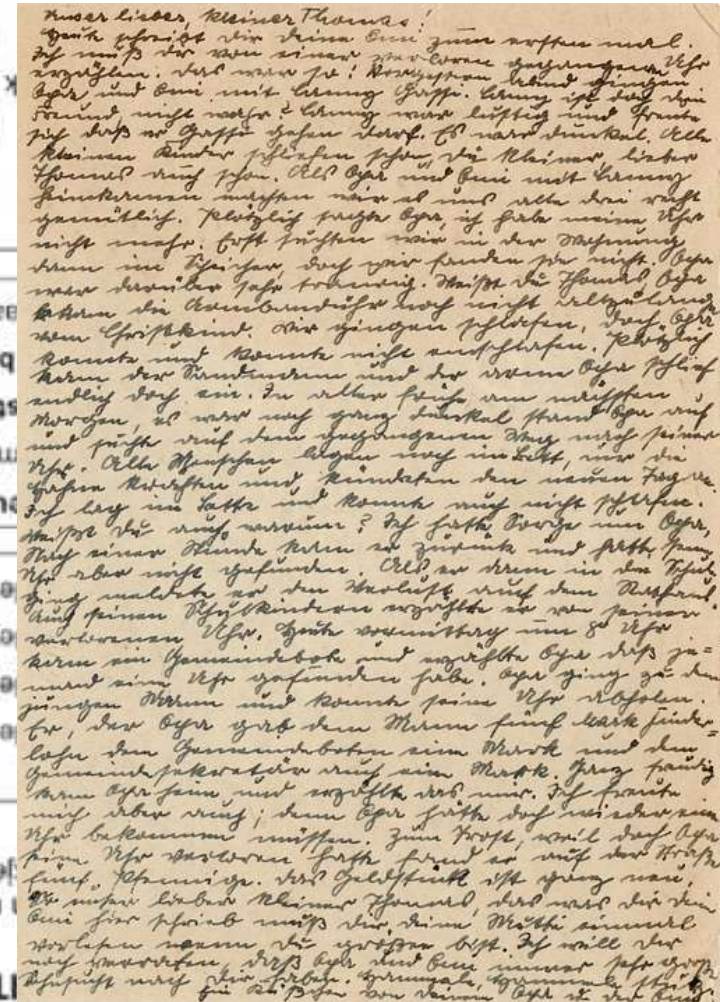 Unser lieber, kleiner Thomas!
Heute schreibt dir deine Omi zum ersten mal.
Ich muß dir von einer verloren gegangenen Uhr
erzählen. Das war so! Vorgestern abend gingen
Opa und Omi mit Lanny Gassi. Lanny ist doch dein
Freund, nicht wahr? Lanny war lustig und freute
sich daß er Gassi gehen darf. Es war dunkel. Alle
kleinen Kinder schliefen schon, du kleiner, lieber
Thomas auch schon. Als Opa und Omi mit Lanny
heimkamen machten wir es uns alle drei recht
gemütlich. Plötzlich sagte Opa, ich habe meine Uhr
nicht mehr. Erst suchten wir in der Wohnung
dann im, doch wir fanden sie nicht. Opa
war darüber sehr traurig. Weißt du Thomas, Opa
bekam die Armbanduhr noch nicht allzulang
vom Christkind. Wir gingen schlafen, doch Opa
konnte und konnte nicht einschlafen. Plötzlich
kam der Sandmann und der arme Opa schlief
endlich doch ein. In aller frühe am nächsten
Morgen, es war noch ganz dunkel stand Opa auf
und suchte auf dem gegangenen Weg nach seiner
Uhr. Alle Menschen lagen noch im Bett, nur die
Hähne krähten und kündeten den neuen Tag an.
Ich lag im Bette und konnte auch nicht schlafen.
Weißt du auch warum? Ich hatte Sorge um Opa,
Nach einer Stunde kam er zurück und hatte seine
Uhr aber nicht gefunden. Als er dann in die Schule
ging meldete er den Verlust auf dem Rathaus.
Auch seinen Schulkindern erzählte er von seiner
verlorenen Uhr. Heute vormittag um 8 Uhr
kam ein Gemeindebote und erzählte Opa daß je=
mand eine Uhr gefunden habe. Opa ging zu dem
jungen Mann und konnte seine Uhr abholen.
Er, der Opa gab dem Mann fünf Mark Finder=
lohn dem Gemeindeboten eine Mark und dem
Gemeindesekretär auch eine Mark. Ganz freudig
kam Opa heim und erzählte das mir. Ich freute
mich aber auch; denn Opa hätte doch wieder eine
Uhr bekommen müssen. Zum Trost, weil doch Opa
seine Uhr verloren hatte fand er auf der Straße
fünf Pfennige. Das Geldstück ist ganz neu.
So unser lieber kleiner Thomas, das was dir dein
Omi hier schrieb muß dir deine Mutti einmal
vorlesen wenn du größer bist. Ich will dir
noch verraten, daß Opa und Omi immer sehr große
Sehnsucht nach dir haben.
von deinem Opa